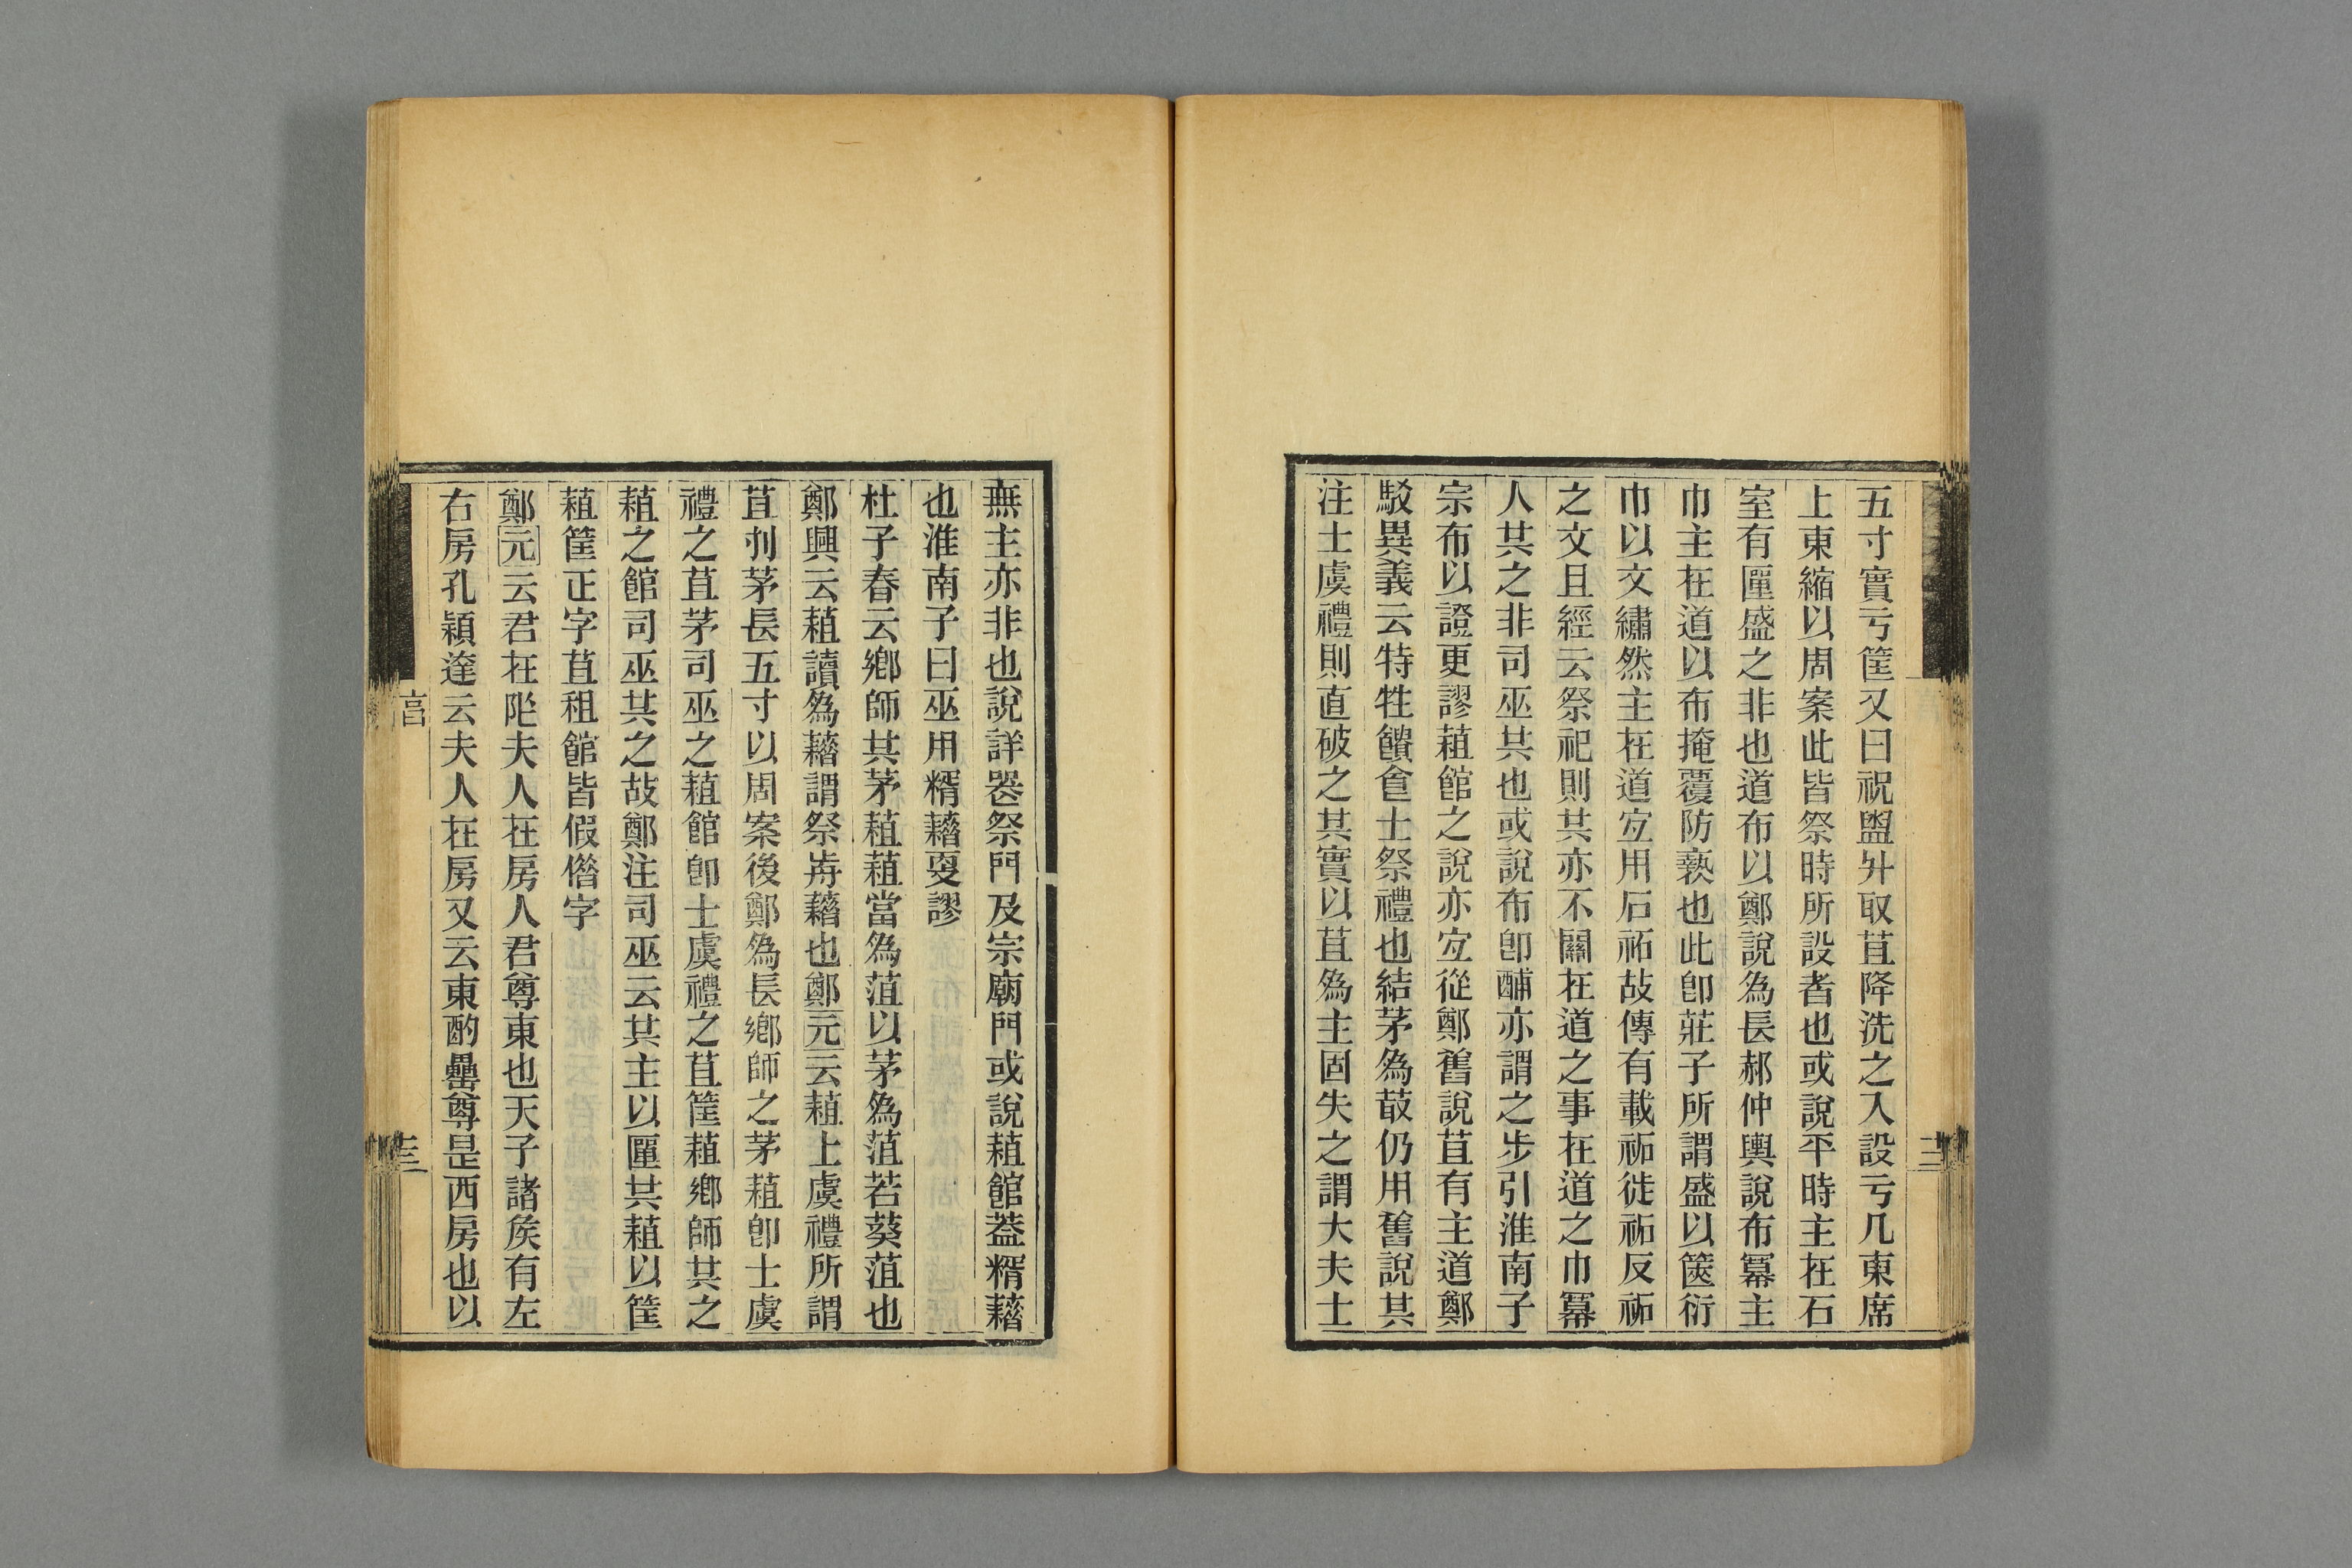 五寸實亏筐又曰祝盥升取苴降洗之入設亏几東席
上東縮以周案此皆祭時所設者也或說平時主在石
室有匰盛之非也道布以鄭說為長郝仲輿說布冪主
巾主在道以布掩覆防褻也此卽莊子所謂盛以篋衍
巾以文繡然主在道宐用石祏故傳有載祏徙祏反祏
之文且經云祭祀則共亦不關在道之事在道之巾冪
人共之非司巫共也或說布卽酺亦謂之步引淮南子
宗布以證更謬蒩館之說亦宐從鄭舊說苴有主道鄭
駁異義云特牲饋食士祭禮也結茅為菆仍用舊說其
注士虞禮則直破之其實以苴為主固失之謂大夫士
無主亦非也說詳器祭門及宗廟門或說蒩館葢糈藉
也淮南子曰巫用糈藉㪅謬
杜子春云鄉師共茅蒩蒩當為菹以茅為菹若葵菹也
鄭興云蒩讀為藉謂祭歬藉也鄭元云蒩上虞禮所謂
苴刌茅長五寸以周案後鄭為長鄉師之茅蒩卽士虞
禮之苴茅司巫之蒩館卽士虞禮之苴筐蒩鄉師共之
蒩之館司巫共之故鄭注司巫云共主以匰共蒩以筐
蒩筐正字苴租館皆假借字
鄭元云君在阼夫人在房人君尊東也天子諸矦有左
右房孔穎達云夫人在房又云東酌罍尊是西房也以